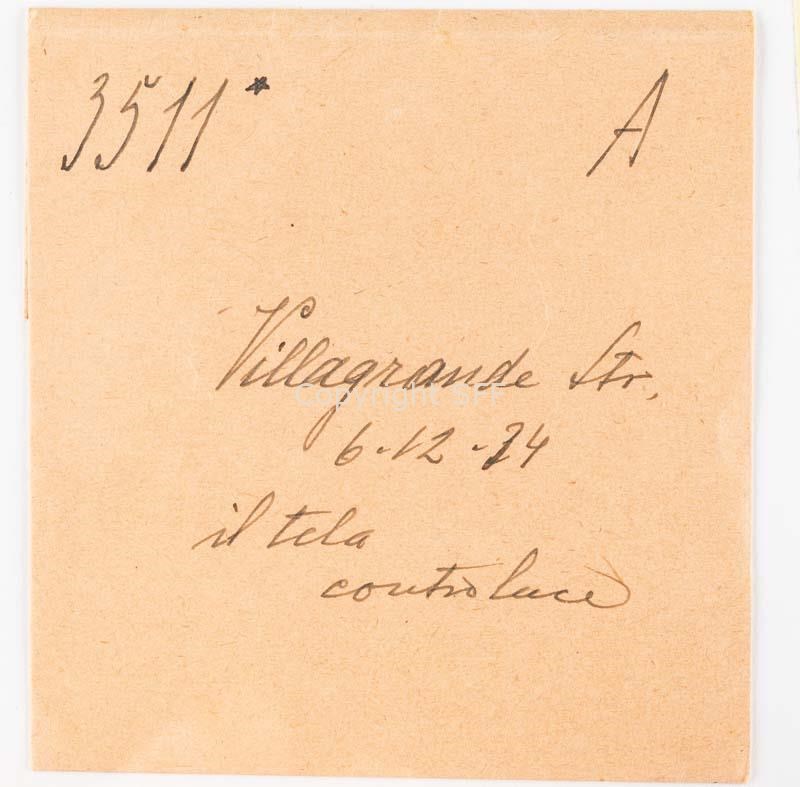 3511* A
Villagrande Str.
Copyright SFF
6-12-24
il tela
controluce